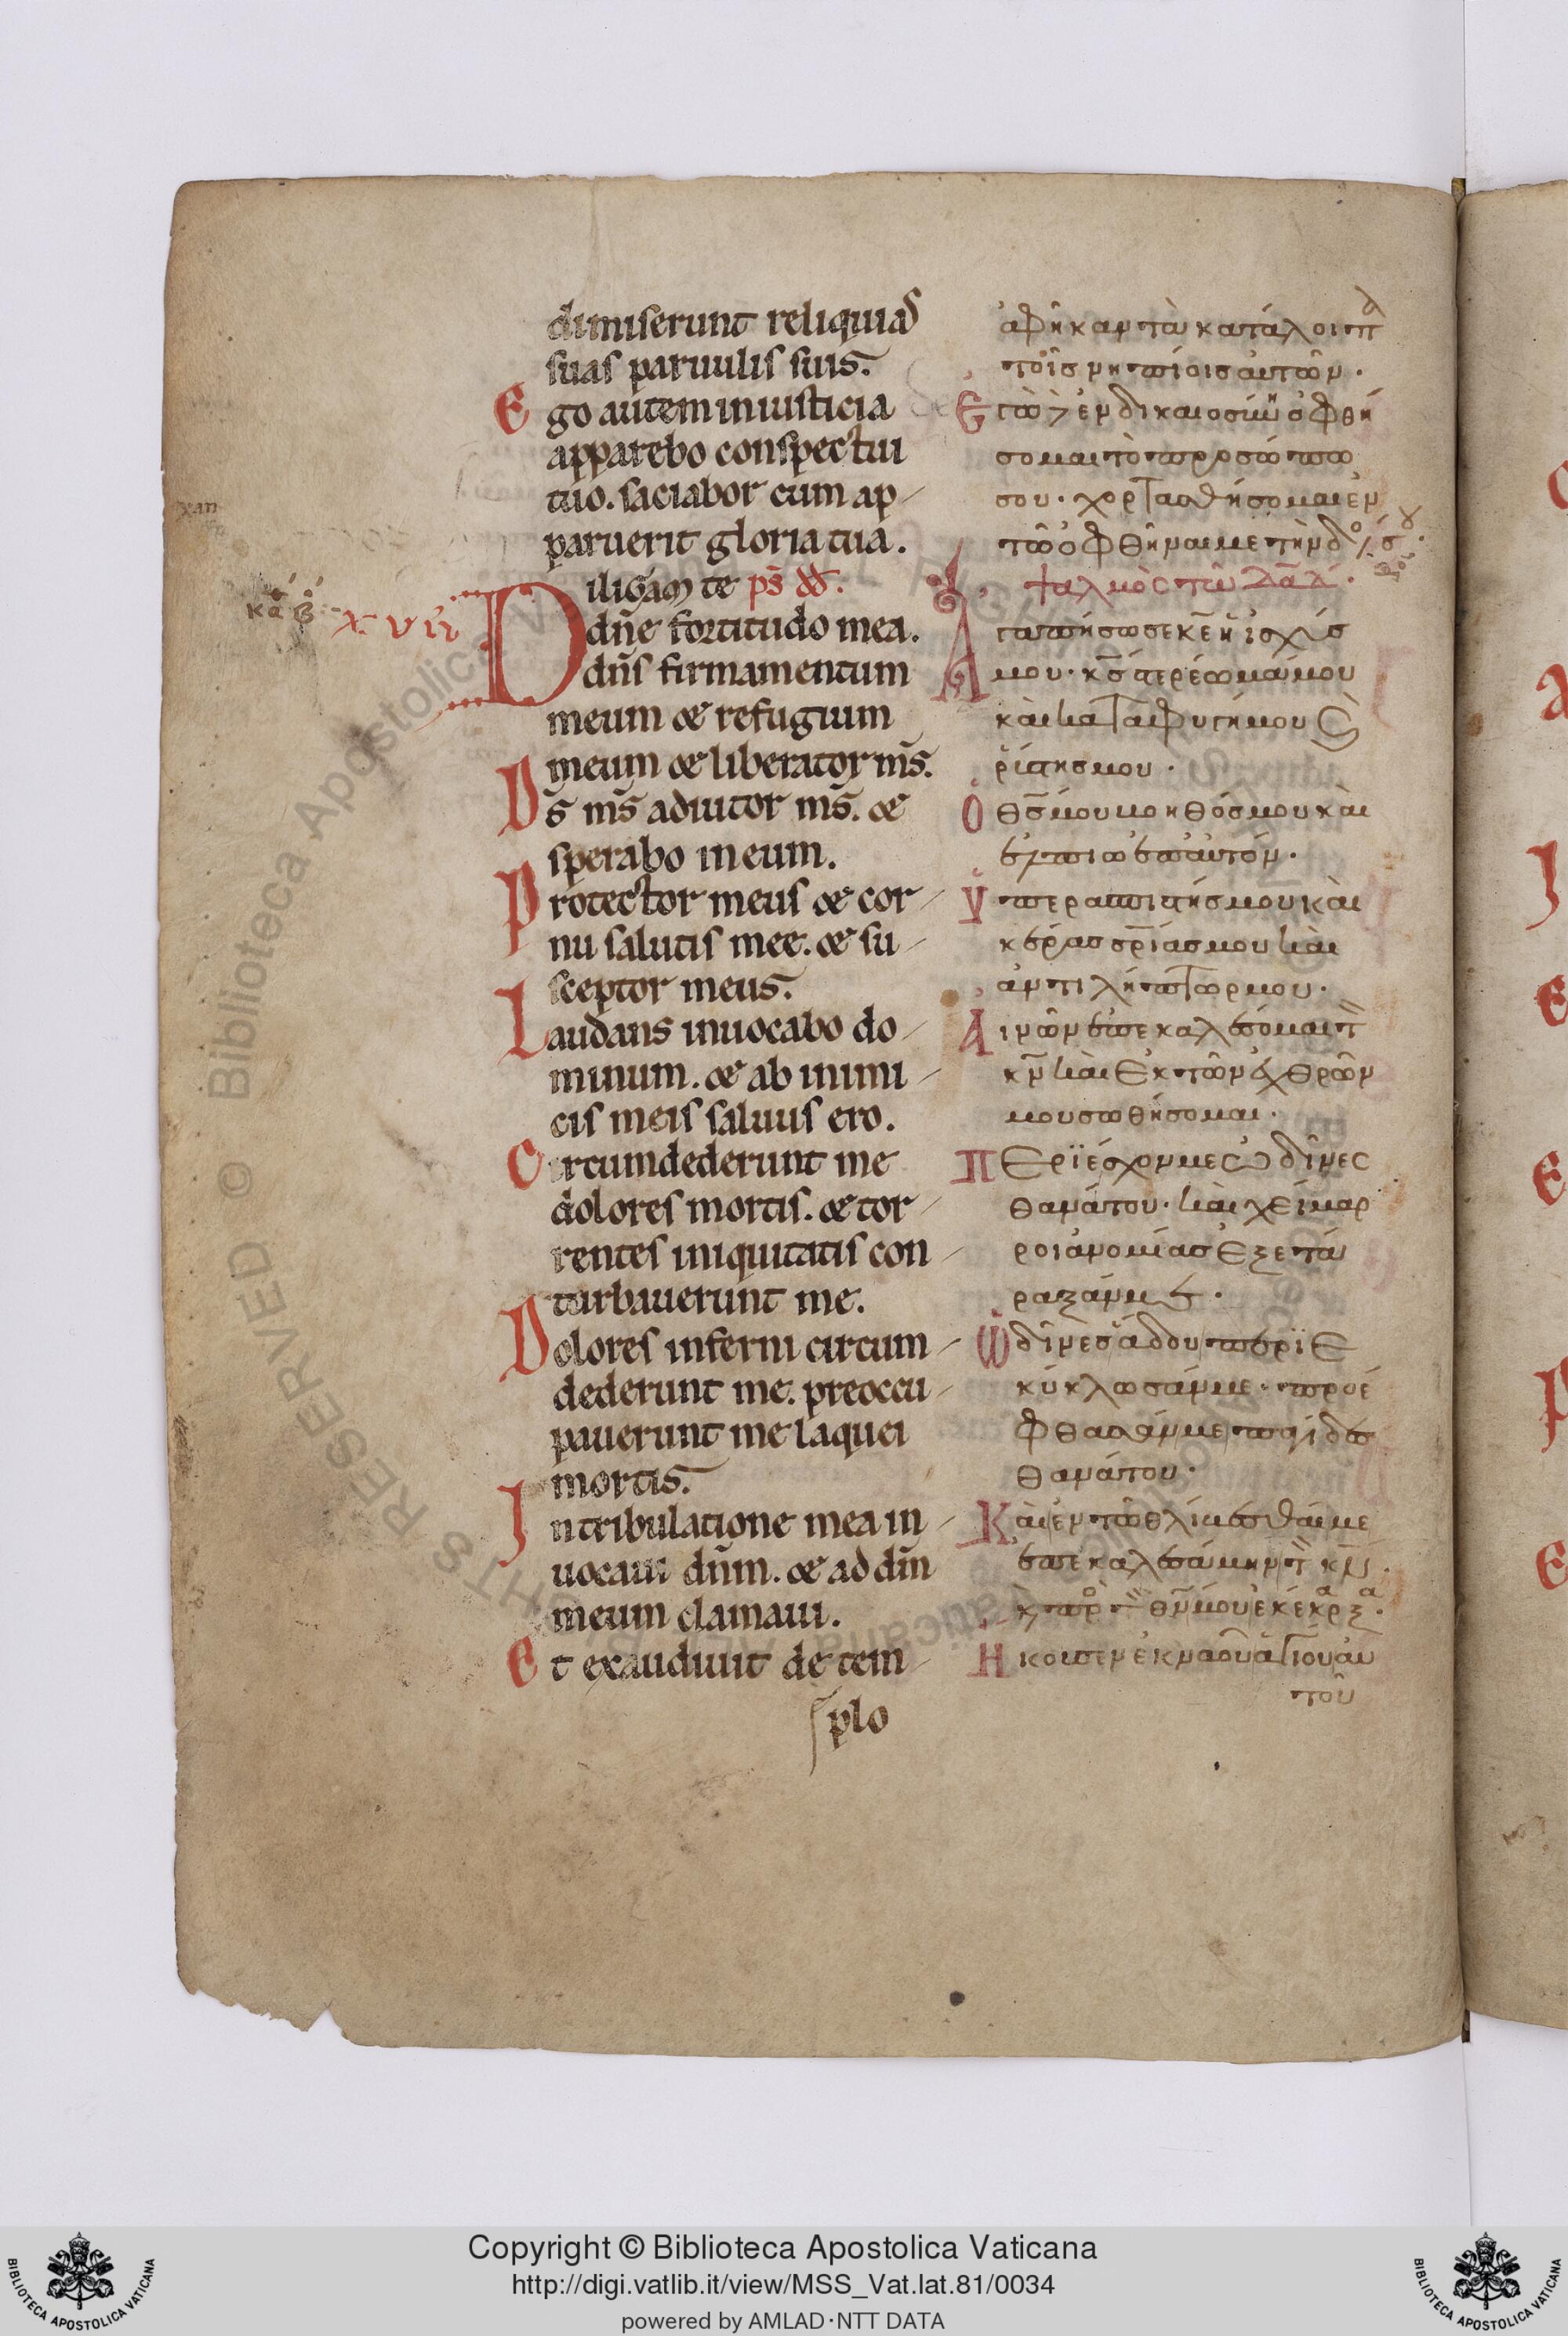 dimiserunt reliquias
suas paruulis suis.
Ego autem in iusticia
apparebo conspectui
tuo. saciabor cum ap
paruerit gloria tua.
κα β XVII
Diligam te ps dd.
dn̄e fortitudo mea.
dn̄s firmamentum
meum & refugium
meum & liberator ms̄.
Ds̄ ms̄ adiutor ms̄. &
sperabo in eum.
Protector meus & cor
nu salutis mee. & su
sceptor meus.
Laudans inuocabo do
minum. & ab inimi
cis meis saluus ero.
Circumdederunt me
dolores mortis. & tor
rentes iniquitatis con
turbauerunt me.
Dolores inferni circum
dederunt me. preoccu
pauerunt me laquei
mortis.
In tribulatione mea in
uocaui dn̄m. & ad dm̄
meum clamaui.
Et exaudiuit de tem
plo
ἀφῆκαν τὰ κατάλοιπα
τοῖς νηπίοις ἀυτῶν.
Ἐγὼ δὲ ἐν δικαιοσύνη ὀφθή
σομαι τὸ προσώπω
σου. χορτασθήσομαι ἐν
τῶ ὀφθῆναι με τὴν δο
ψαλμὸς τῶ Δαδ.
Ἀγαπήσω σε κε̄ ἡ ἰσχύς
μου. κς̄ στερέωμά μου
καὶ καταφυγή μου
ῥύστης μου.
Ὁ θς̄ μου βοηθός μου καὶ
ἐλπιῶ ἐπ ἀυτόν.
Ὑπερασπιστής μου καὶ
κέρας σρ̄ίας μου καὶ
ἀντιλήπτωρ μου.
Αἰνῶν ἐπεκαλέσομαι τ
κν̄ καὶ ἐκ τῶν ἐχθρῶν
μου σωθήσομαι.
Περιέσχον με ὠδῖνες
θανάτου. καὶ χείμαρ
ροι ἀνομίας ἐξετά
ραξάν με.
Ὠδῖνες ἅδου περιε
κύκλωσάν με. προέ
φθασάν με παγίδες
θανάτου.
Καὶ ἐν τῶ θλίβεσθαί με
ἐπεκαλεσάμην τ κν̄.
κ πρ τ θν̄ μου ἐκέκραξα.
Ηκουσεν ἐκ ναου ἁγίου ἀυ
τοῦ
Copyright © Biblioteca Apostolica Vaticana
http://digi.vatlib.it/view/MSS_Vat.lat.81/0034
powered by AMLAD·NTT DATA
BIBLIOTECA APOSTOLICA VATICANA
BIBLIOTECA APOSTOLICA VATICANA